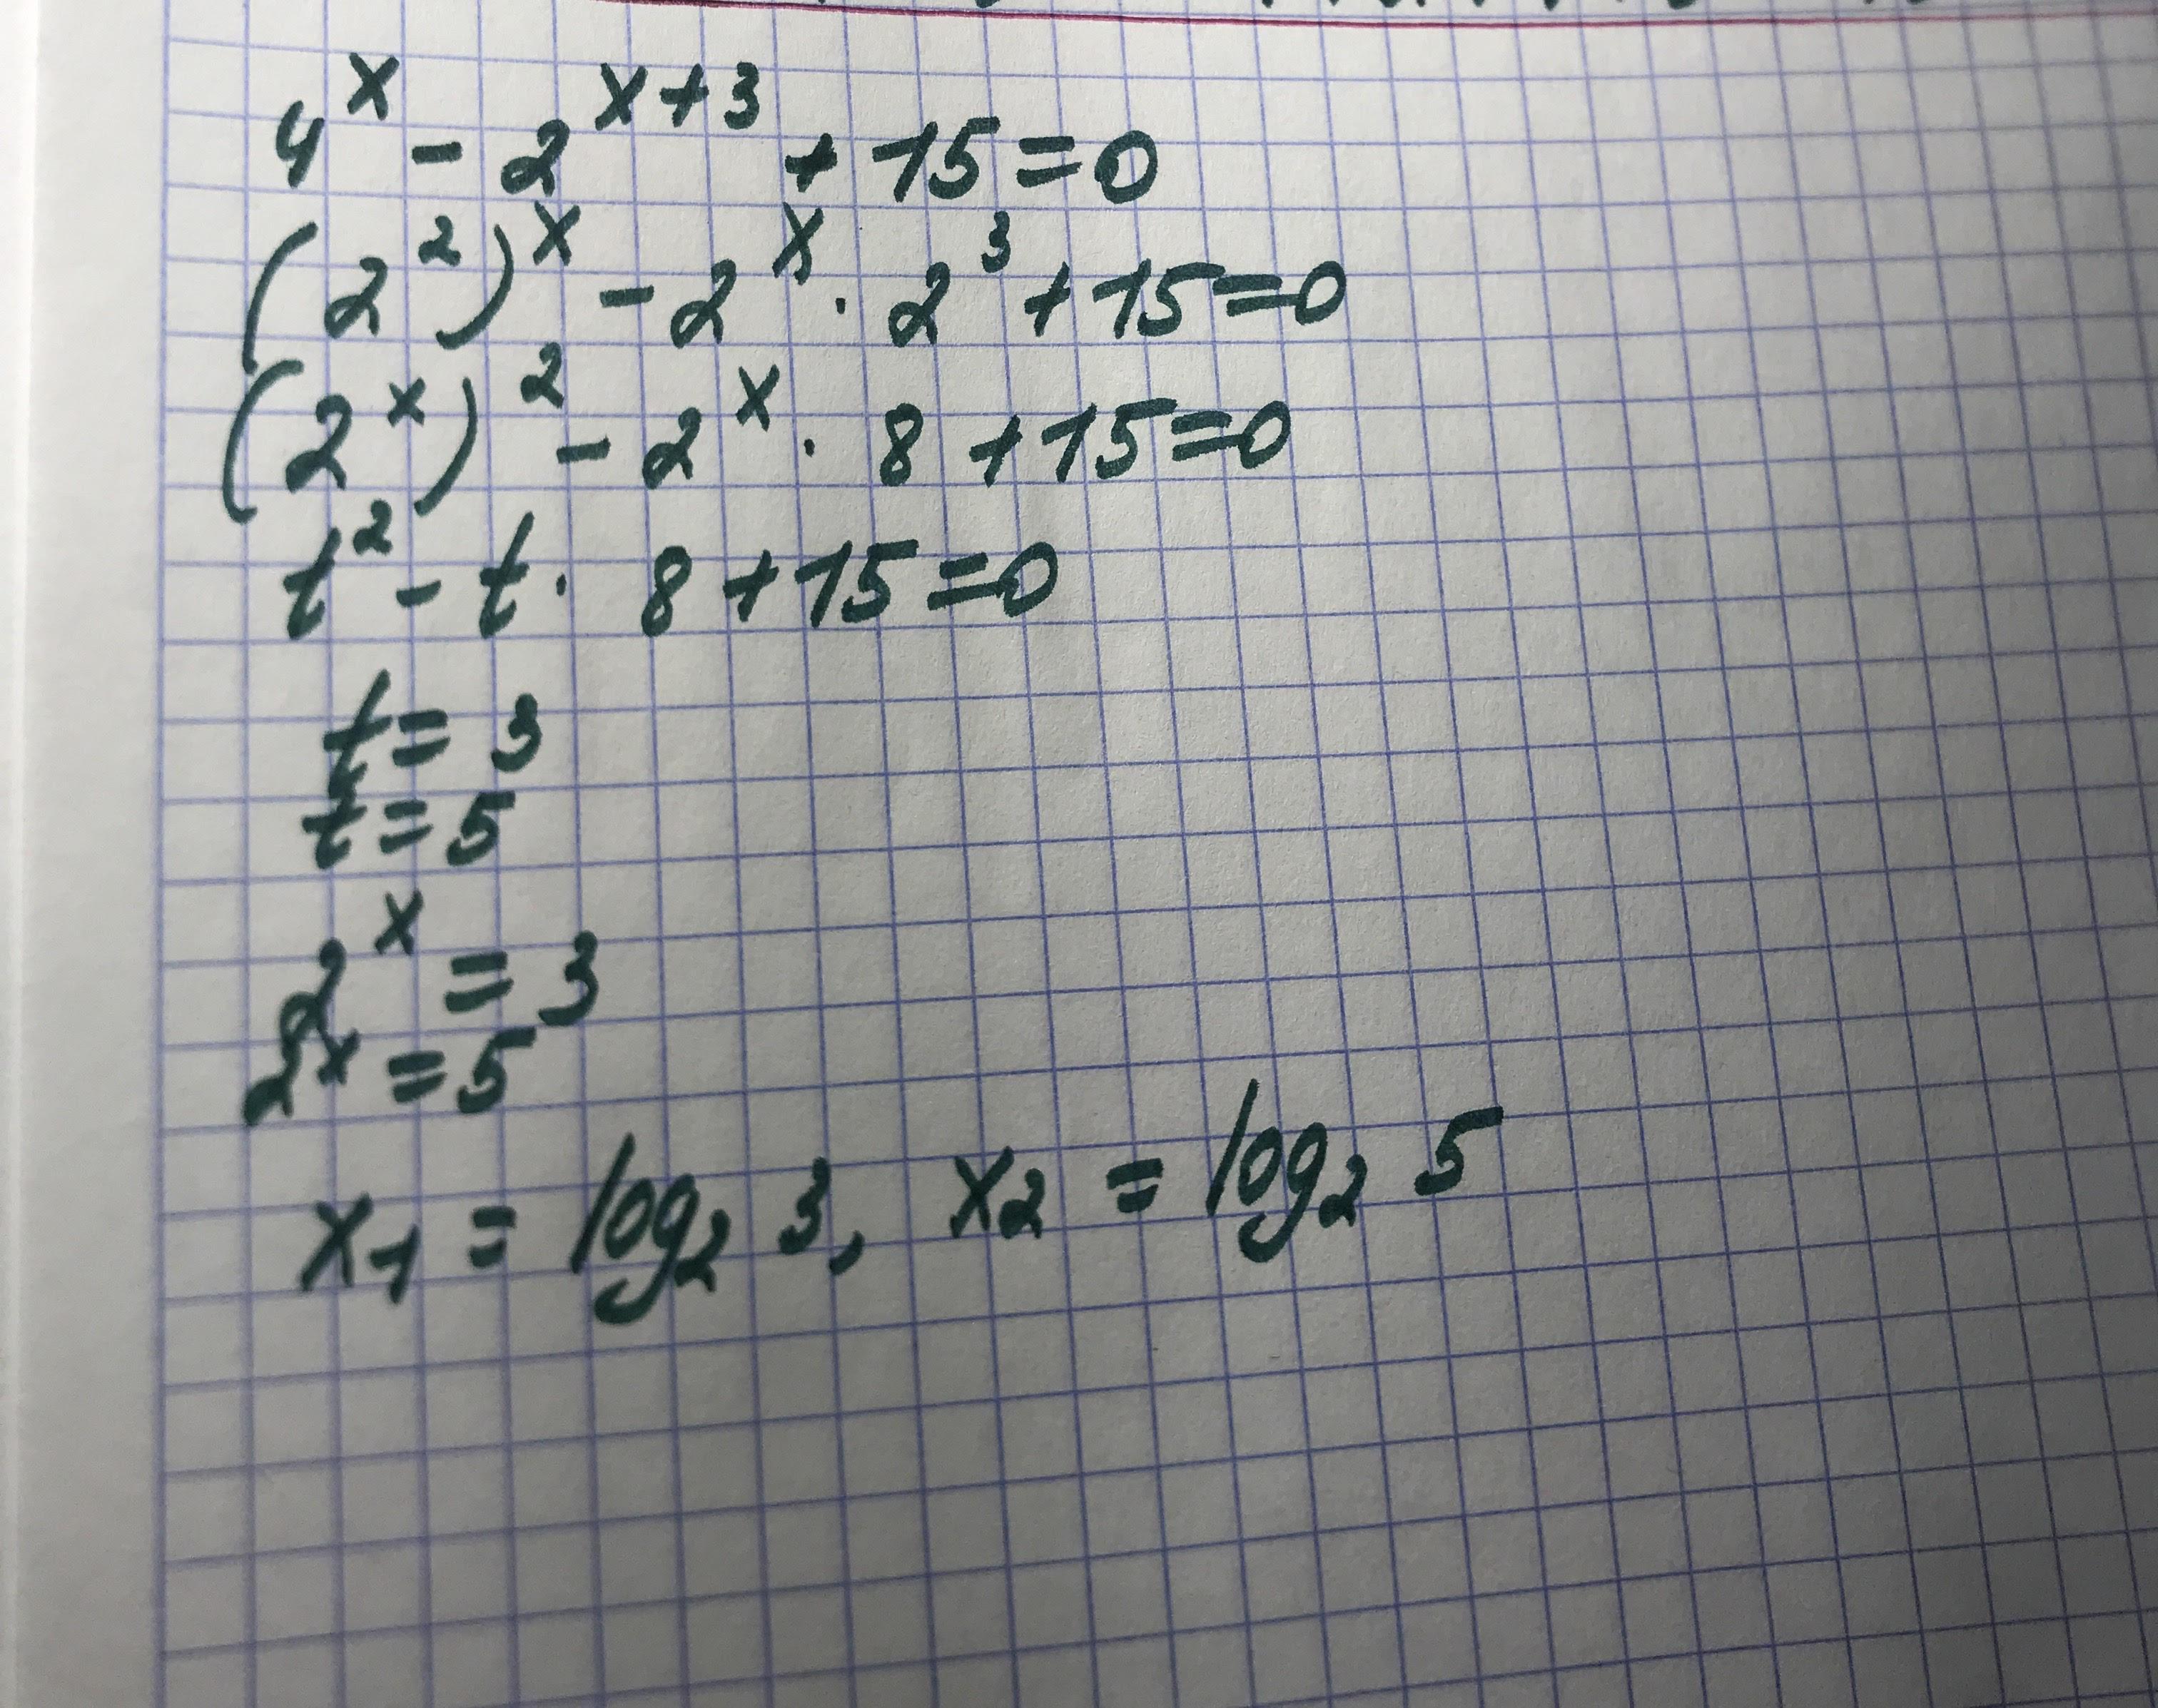 4^x - 2^{x+3} + 15 = 0
(2^2)^x - 2^x · 2^3 + 15 = 0
(2^x)^2 - 2^x · 8 + 15 = 0
t^2 - t · 8 + 15 = 0
t = 3
t = 5
2^x = 3
2^x = 5
x_1 = log_2 3, x_2 = log_2 5